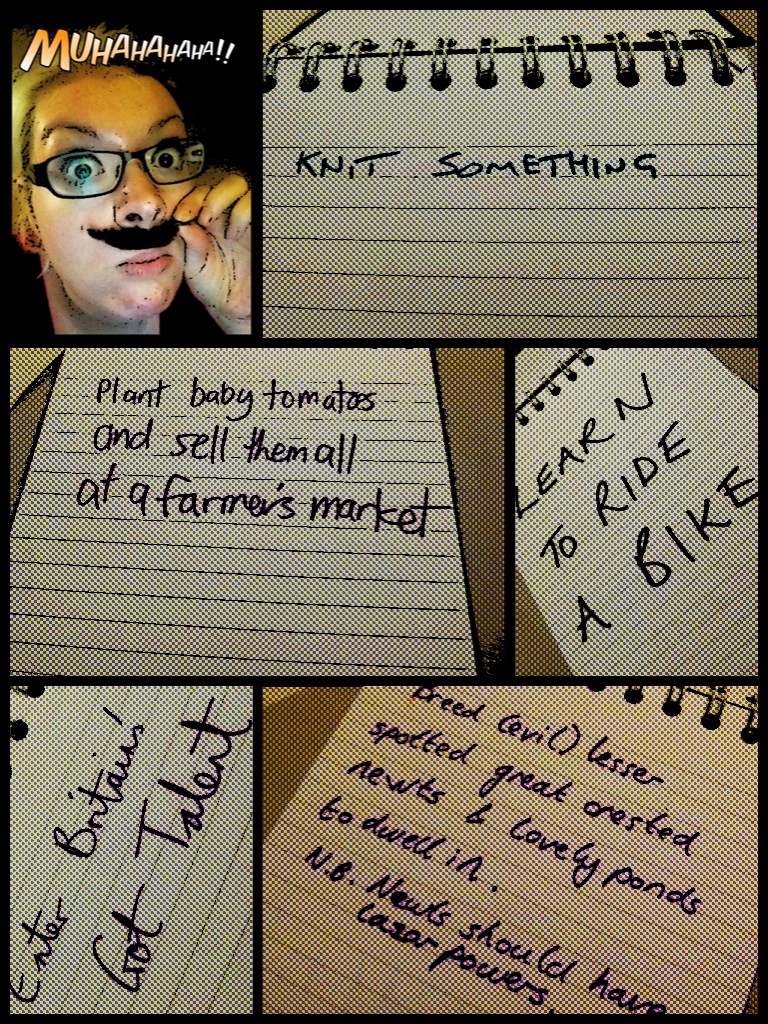 MUHAHAHAHA!!
KNIT SOMETHING
Plant baby tomatoes
and sell them all
at a farmer's market
LEARN
TO RIDE
A BIKE
Enter Britains'
Got Talent
Breed (evil) lesser
spotted great crested
newts & lovely ponds
to dwell in.
N.B. Newts should have
lazer powers.